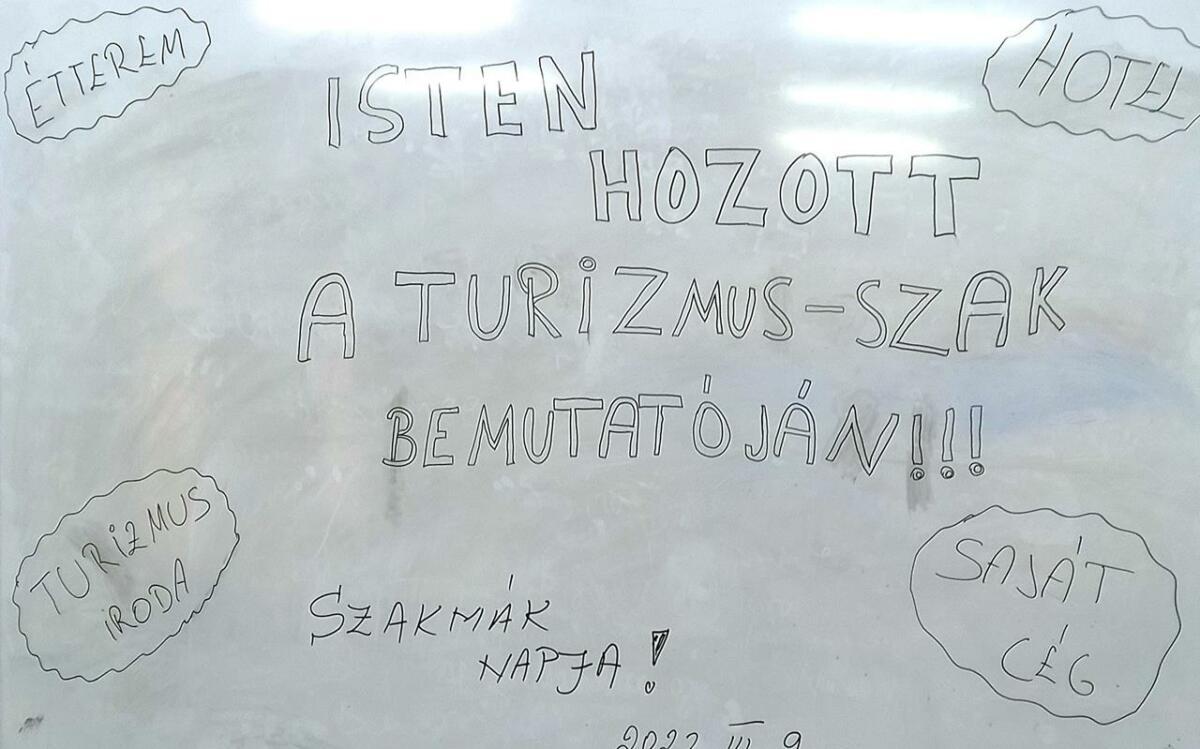 ÉTTEREM
HOTEL
ISTEN
HOZOTT
A TURIZMUS-SZAK
BEMUTATÓJÁN!!!
TURIZMUS
IRODA
SAJÁT
CÉG
SZAKMÁK
NAPJA!
III. 9